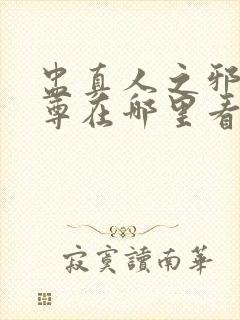 蛊真人之邪
尊在哪里看
寂寞讀南華